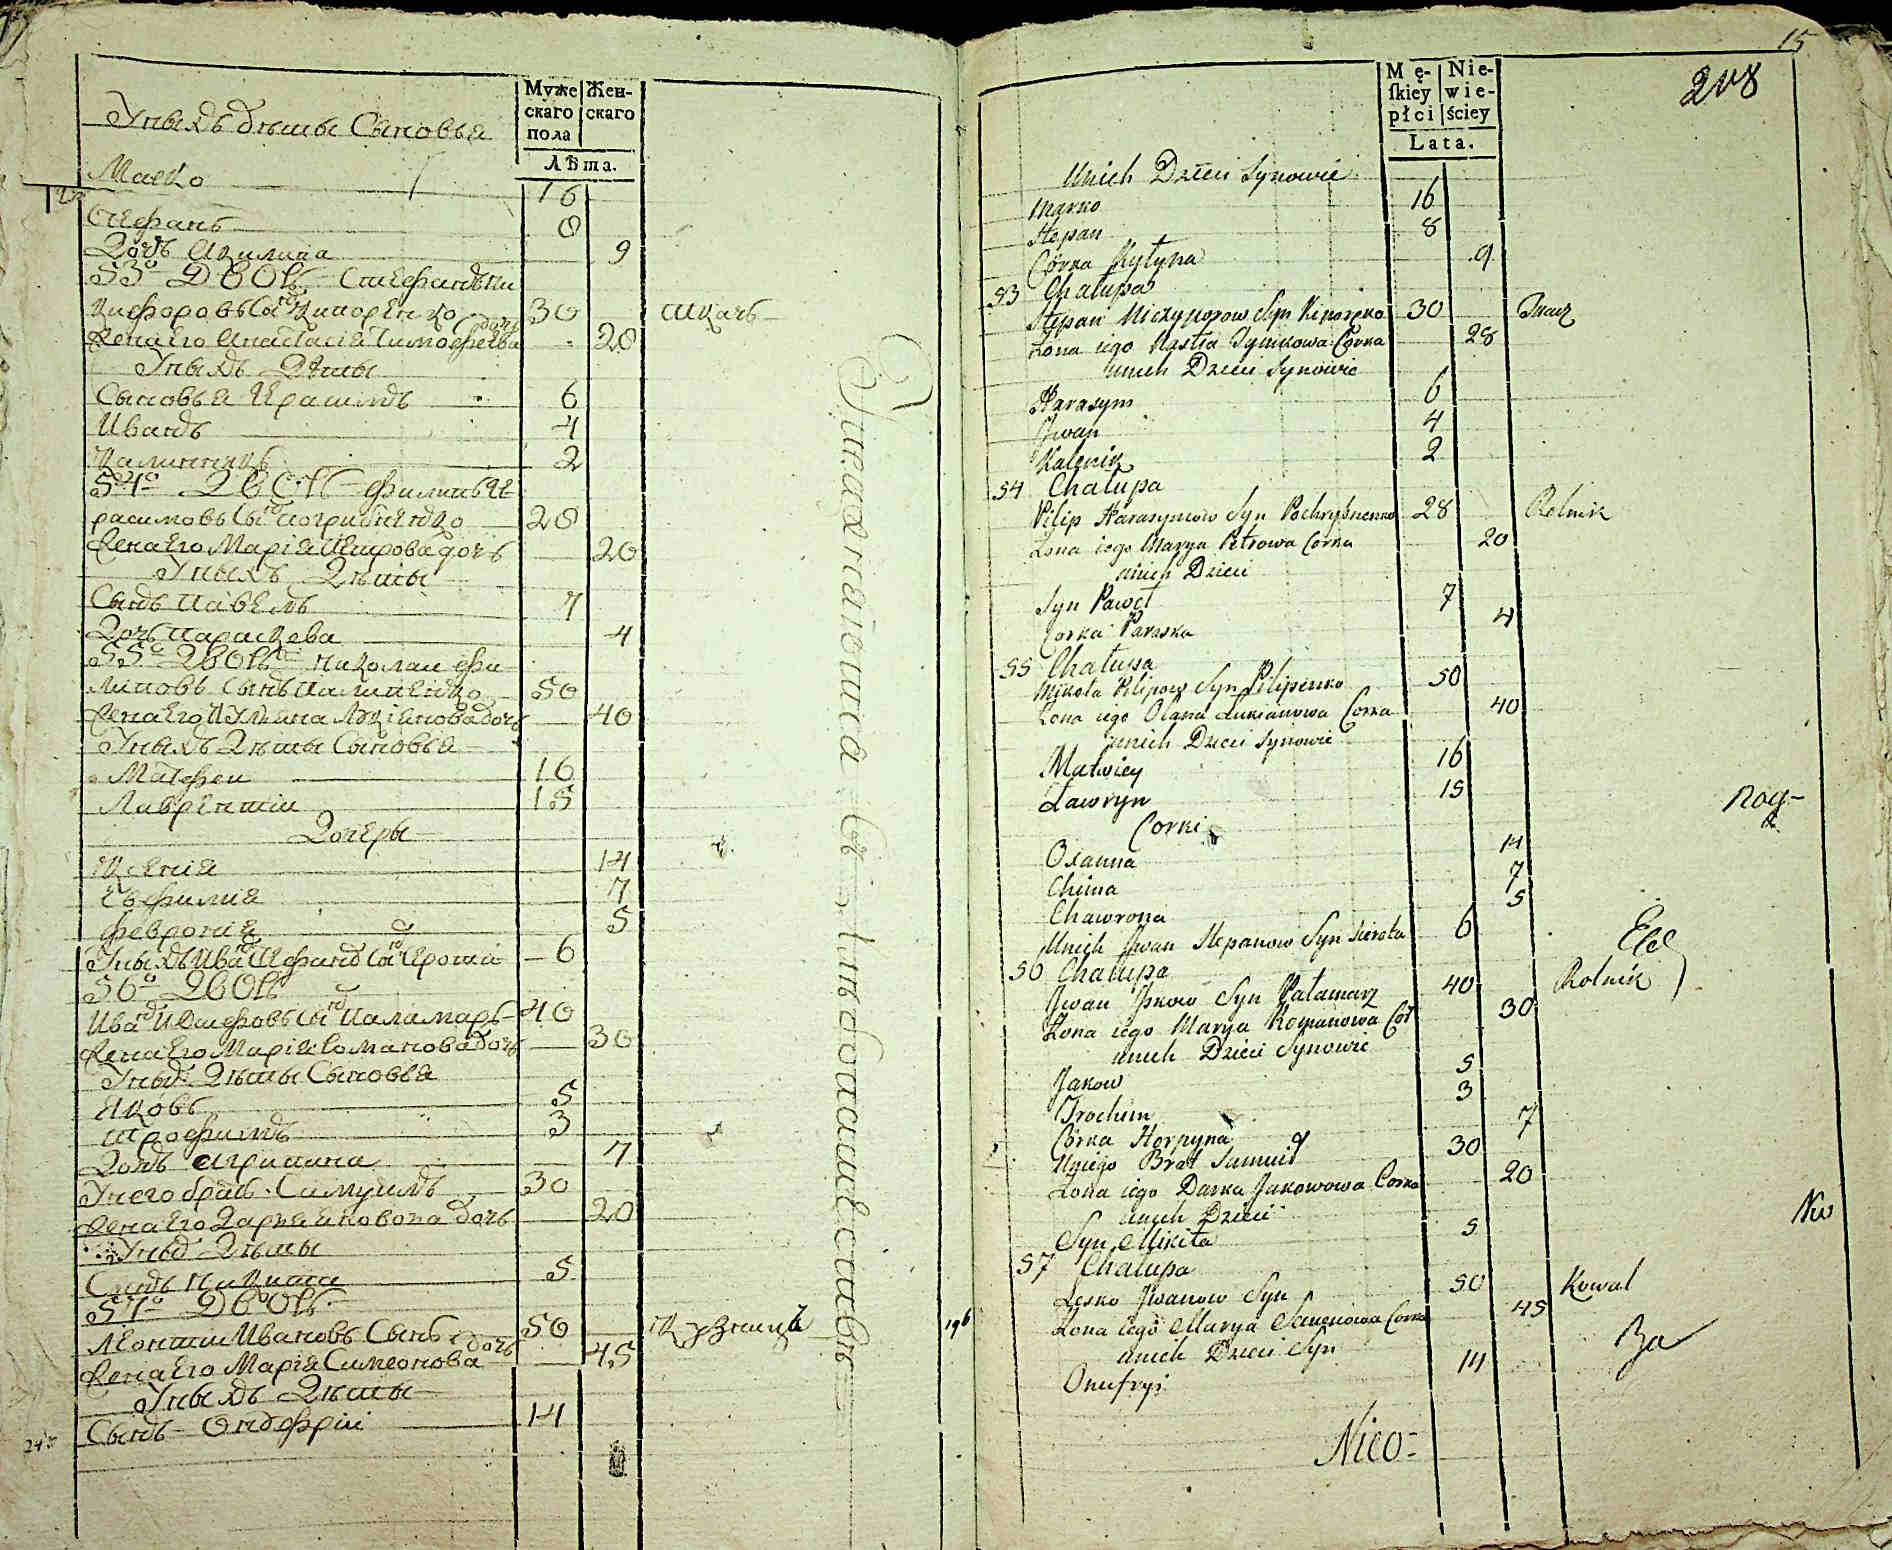 Муже
скаго
пола
Жен-
скаго
Лѣта.
Унихъ дѣти Сыновья
Марко 16
Стефанъ 8
Дочь Акилина 9
53о Дворъ Стефанъ Ни
кифоровъ Сынъ Кипоренко 30 ткачь
Жена Его Анастасія Тимофеева дочь 28
Унихъ Дѣти
Сыновья Герасимъ 6
Иванъ 4
Калинникъ 2
54о Дворъ Филипъ Ге-
расимовъ Сынъ Погрибненко 28
Жена Его Марія Петрова дочь 20
Унихъ Дѣти
Сынъ Павелъ 7
Дочь Параскева 4
55о Дворъ Николай Фи
липовъ Сынъ 50
Жена Его Ульяна Лукіянова дочь 40
Унихъ Дѣти Сыновья
Матфей 16
Лаврентій 15
Дочеры
Ксенія 14
Евфимія 7
Февронія 5
Унихъ Иванъ Стефановъ Сынъ Сирота 6
56о Дворъ
Иванъ Сынъ Паламарь 40
Жена Его Марія Романова дочь 30
Унихъ Дѣти Сыновья
Яковъ 5
Трофимъ 3
Дочь Агрипина 7
Унего братъ Самуилъ 30
Жена Его Дарія Яковова дочь 20
Унихъ Дѣти
Сынъ Никита 5
57о Дворъ
Леонтій Ивановъ Сынъ 50 Кузнецъ
Жена Его Марія Симеонова дочь 45
Унихъ Дѣти
Сынъ Онофрій 14
196
15
208
Mę-
ſkiey
płci
Nie-
wie-
ściey
Lata.
Unich Dzieci Synowie
Marko 16
Stepan 8
Córka Kyłyna 9
53 Chałupa
Stepan Niczyporow Syn Kiporenko 30 Tkacz
Zona iego Nastia Tymkowa Corka 28
unich Dzieci Synowie
Harasym 6
Jwan 4
Kalenik 2
54 Chałupa
Pilip Harasymow Syn Pochrybnenko 28 Rolnik
Zona iego Marya Petrowa Corka 20
unich Dzieci
Syn Paweł 7
Corka Paraska 4
55 Chałupa
Mikoła Pilipow Syn Pilipenko 50
Zona iego Olana Łukianowa Corka 40
unich Dzieci Synowie
Matwiey 16
Ławryn 15
Corki
Oxanna 14
Chima 7
Chawrona 5
Unich Jwan Stepanow Syn Sierota 6
56 Chałupa Rolnik
Jwan Syn Pałamarz 40
Zona iego Marya Romanowa Cor 30
unich Dzieci Synowie
Jakow 5
Trochim 3
Córka Horpyna 7
Uniego Brat Samuił 30
Zona iego Darka Jakowowa Corka 20
unich Dzieci
Syn Mikita 5
57 Chałupa
Lesko Jwanow Syn 50 Kowal
Zona iego Marya Semenowa Corka 45
unich Dzieci Syn
Onufryi 14